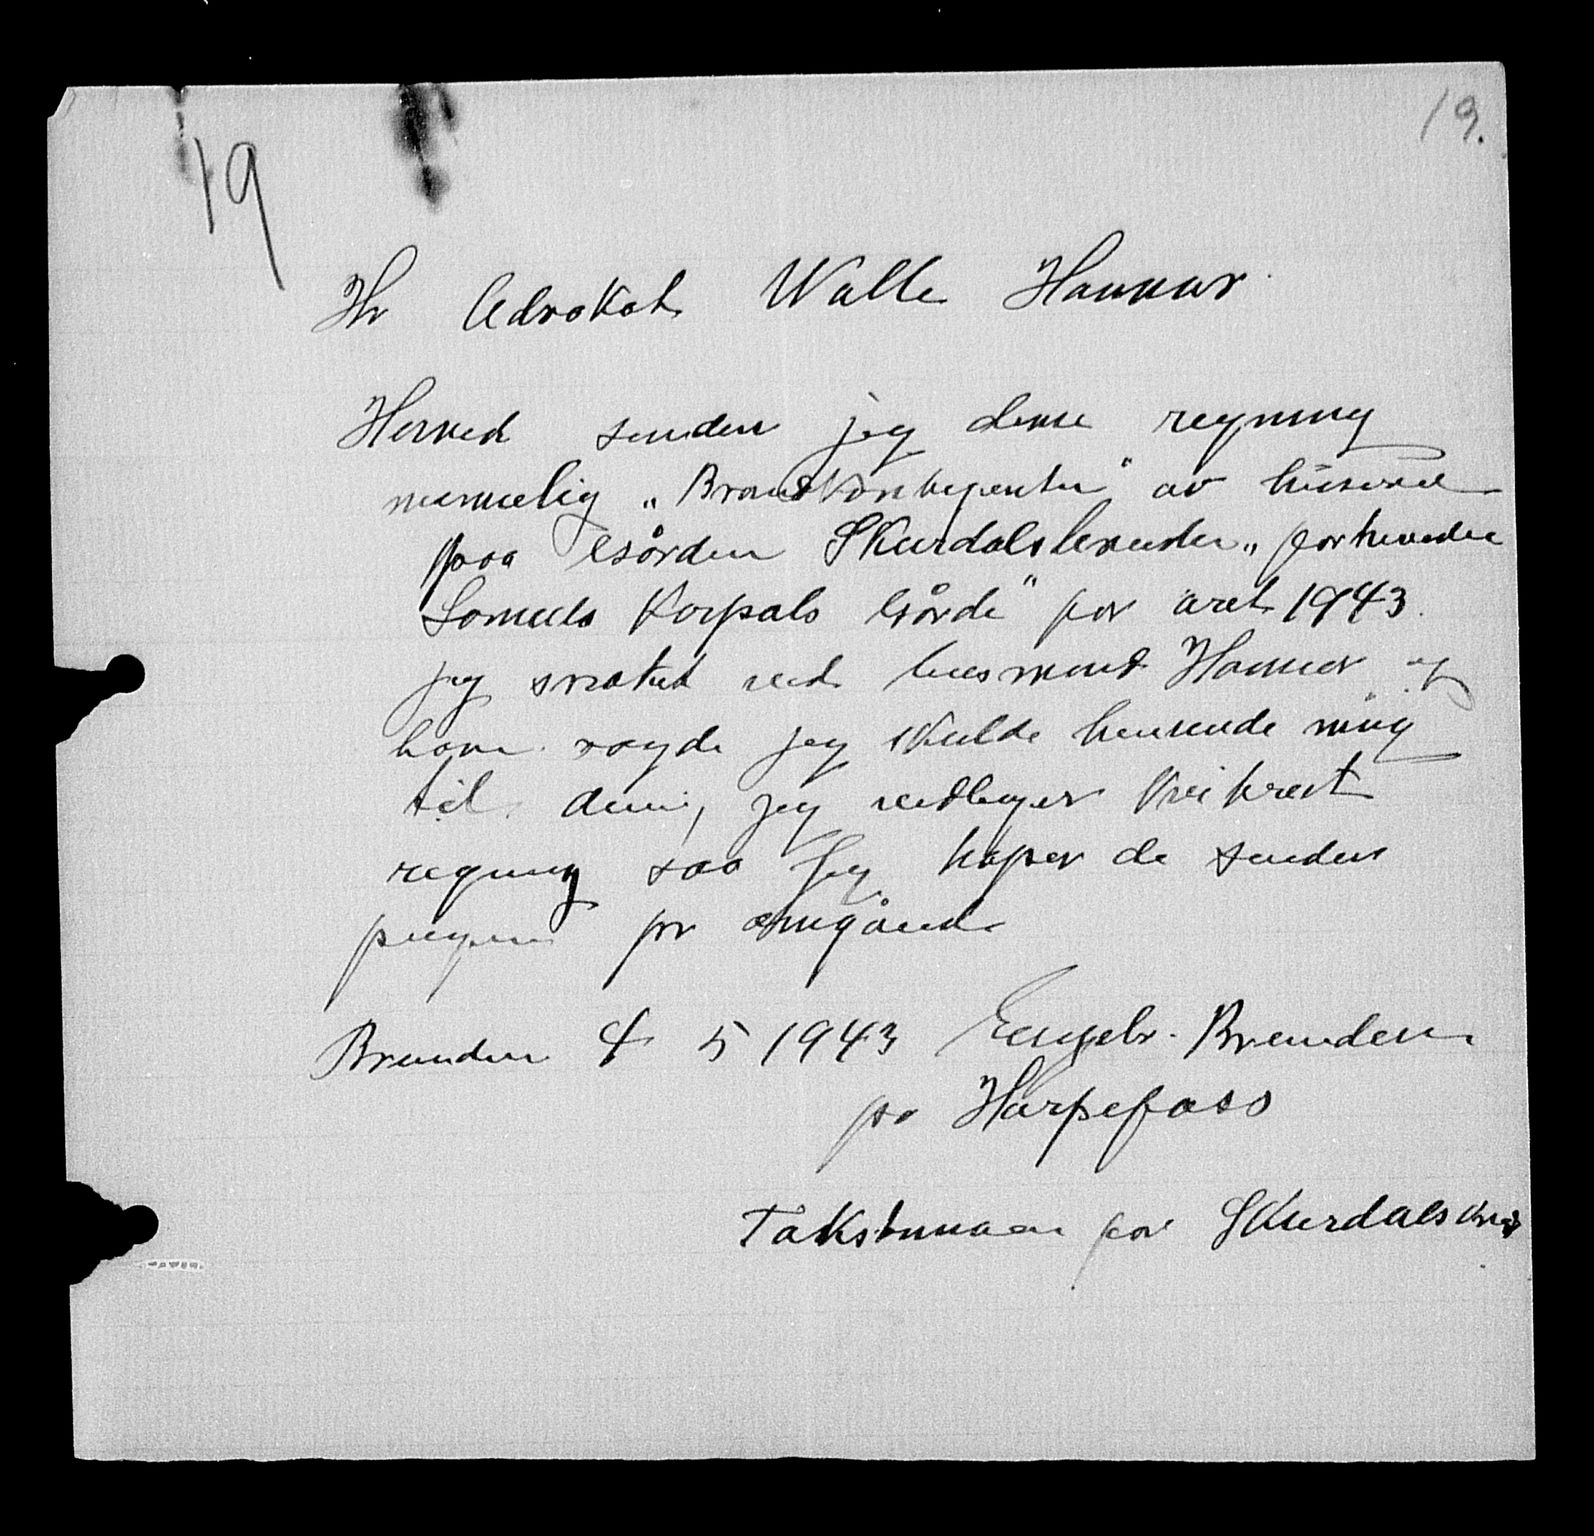 19
19.
Hr Advokat Walle Hamar
Herved sender jeg dene regning
nemmelig „Brandkontegenten" av husene
paa Gården Skurdalslenden „forhenden
Samuels Korpals Gårde" for året 1943.
jeg snaket ved lensmand Hamer og
han sagde jeg skulde hensende mig
til dem, jeg vedleger kvitrert
regning saa jeg håper de sender
pengene pr omgåend
Brenden 4 5 1943 Engebr. Brenden
pr Harpefoss
Takstmaen for Skurdals